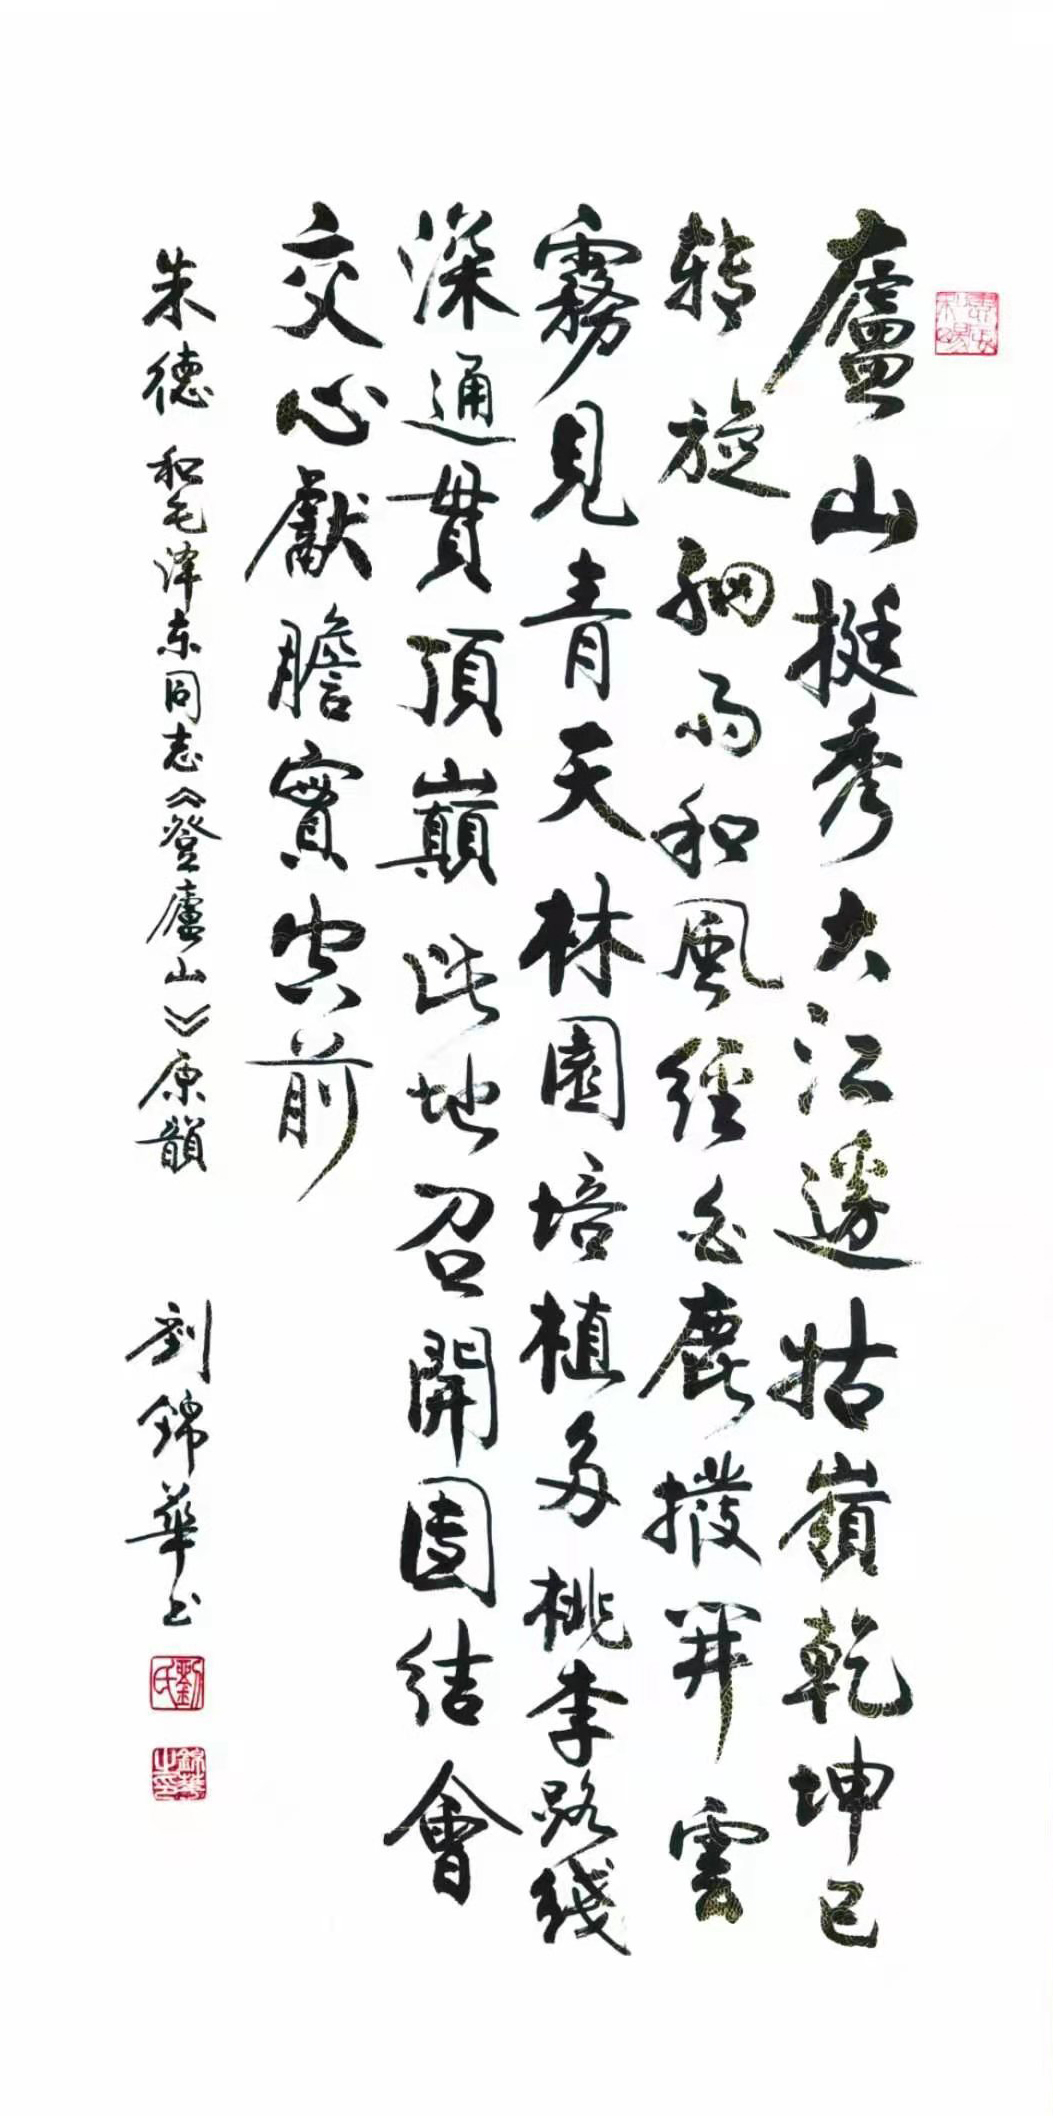 廬山挺秀大江邊牯嶺乾坤已
轉旋細雨和風經白鹿撥開雲
霧見青天林園培植多桃李路綫
深通貫頂巔此地召開團結會
交心獻膽實空前
朱德和毛泽东同志《登廬山》原韻
劉錦華书
劉氏
錦華之印